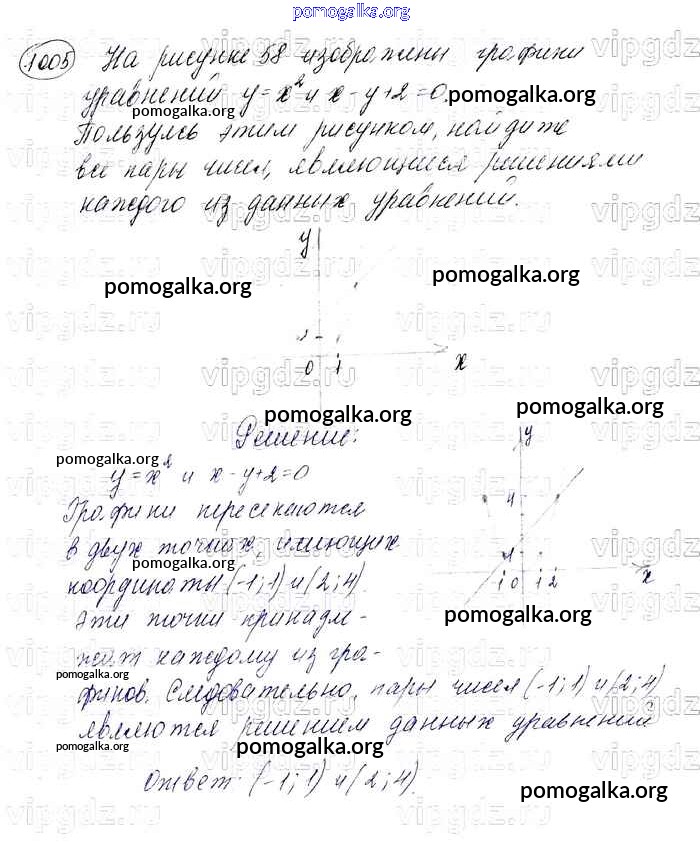 pomogalka.org
1005 На рисунке 58 изображены графики
уравнений y = x² и x - y + 2 = 0.
pomogalka.org
Пользуясь этим рисунком, найдите
все пары чисел, являющиеся решениями
каждого из данных уравнений.
y
pomogalka.org
pomogalka.org
0 1 x
pomogalka.org
pomogalka.org
Решение:
y
pomogalka.org
y = x² и x - y + 2 = 0
Графики пересекаются
4
в двух точках, имеющих
1
pomogalka.org
координаты (-1; 1) и (2; 4).
1 0 1 2 x
Эти точки принадле-
pomogalka.org
жат каждому из гра-
pomogalka.org
фиков. Следовательно, пары чисел (-1; 1) и (2; 4)
pomogalka.org
являются решением данных уравнений
pomogalka.org
pomogalka.org
Ответ: (-1; 1) и (2; 4).
pomogalka.org
pomogalka.org
vipgdz.ru